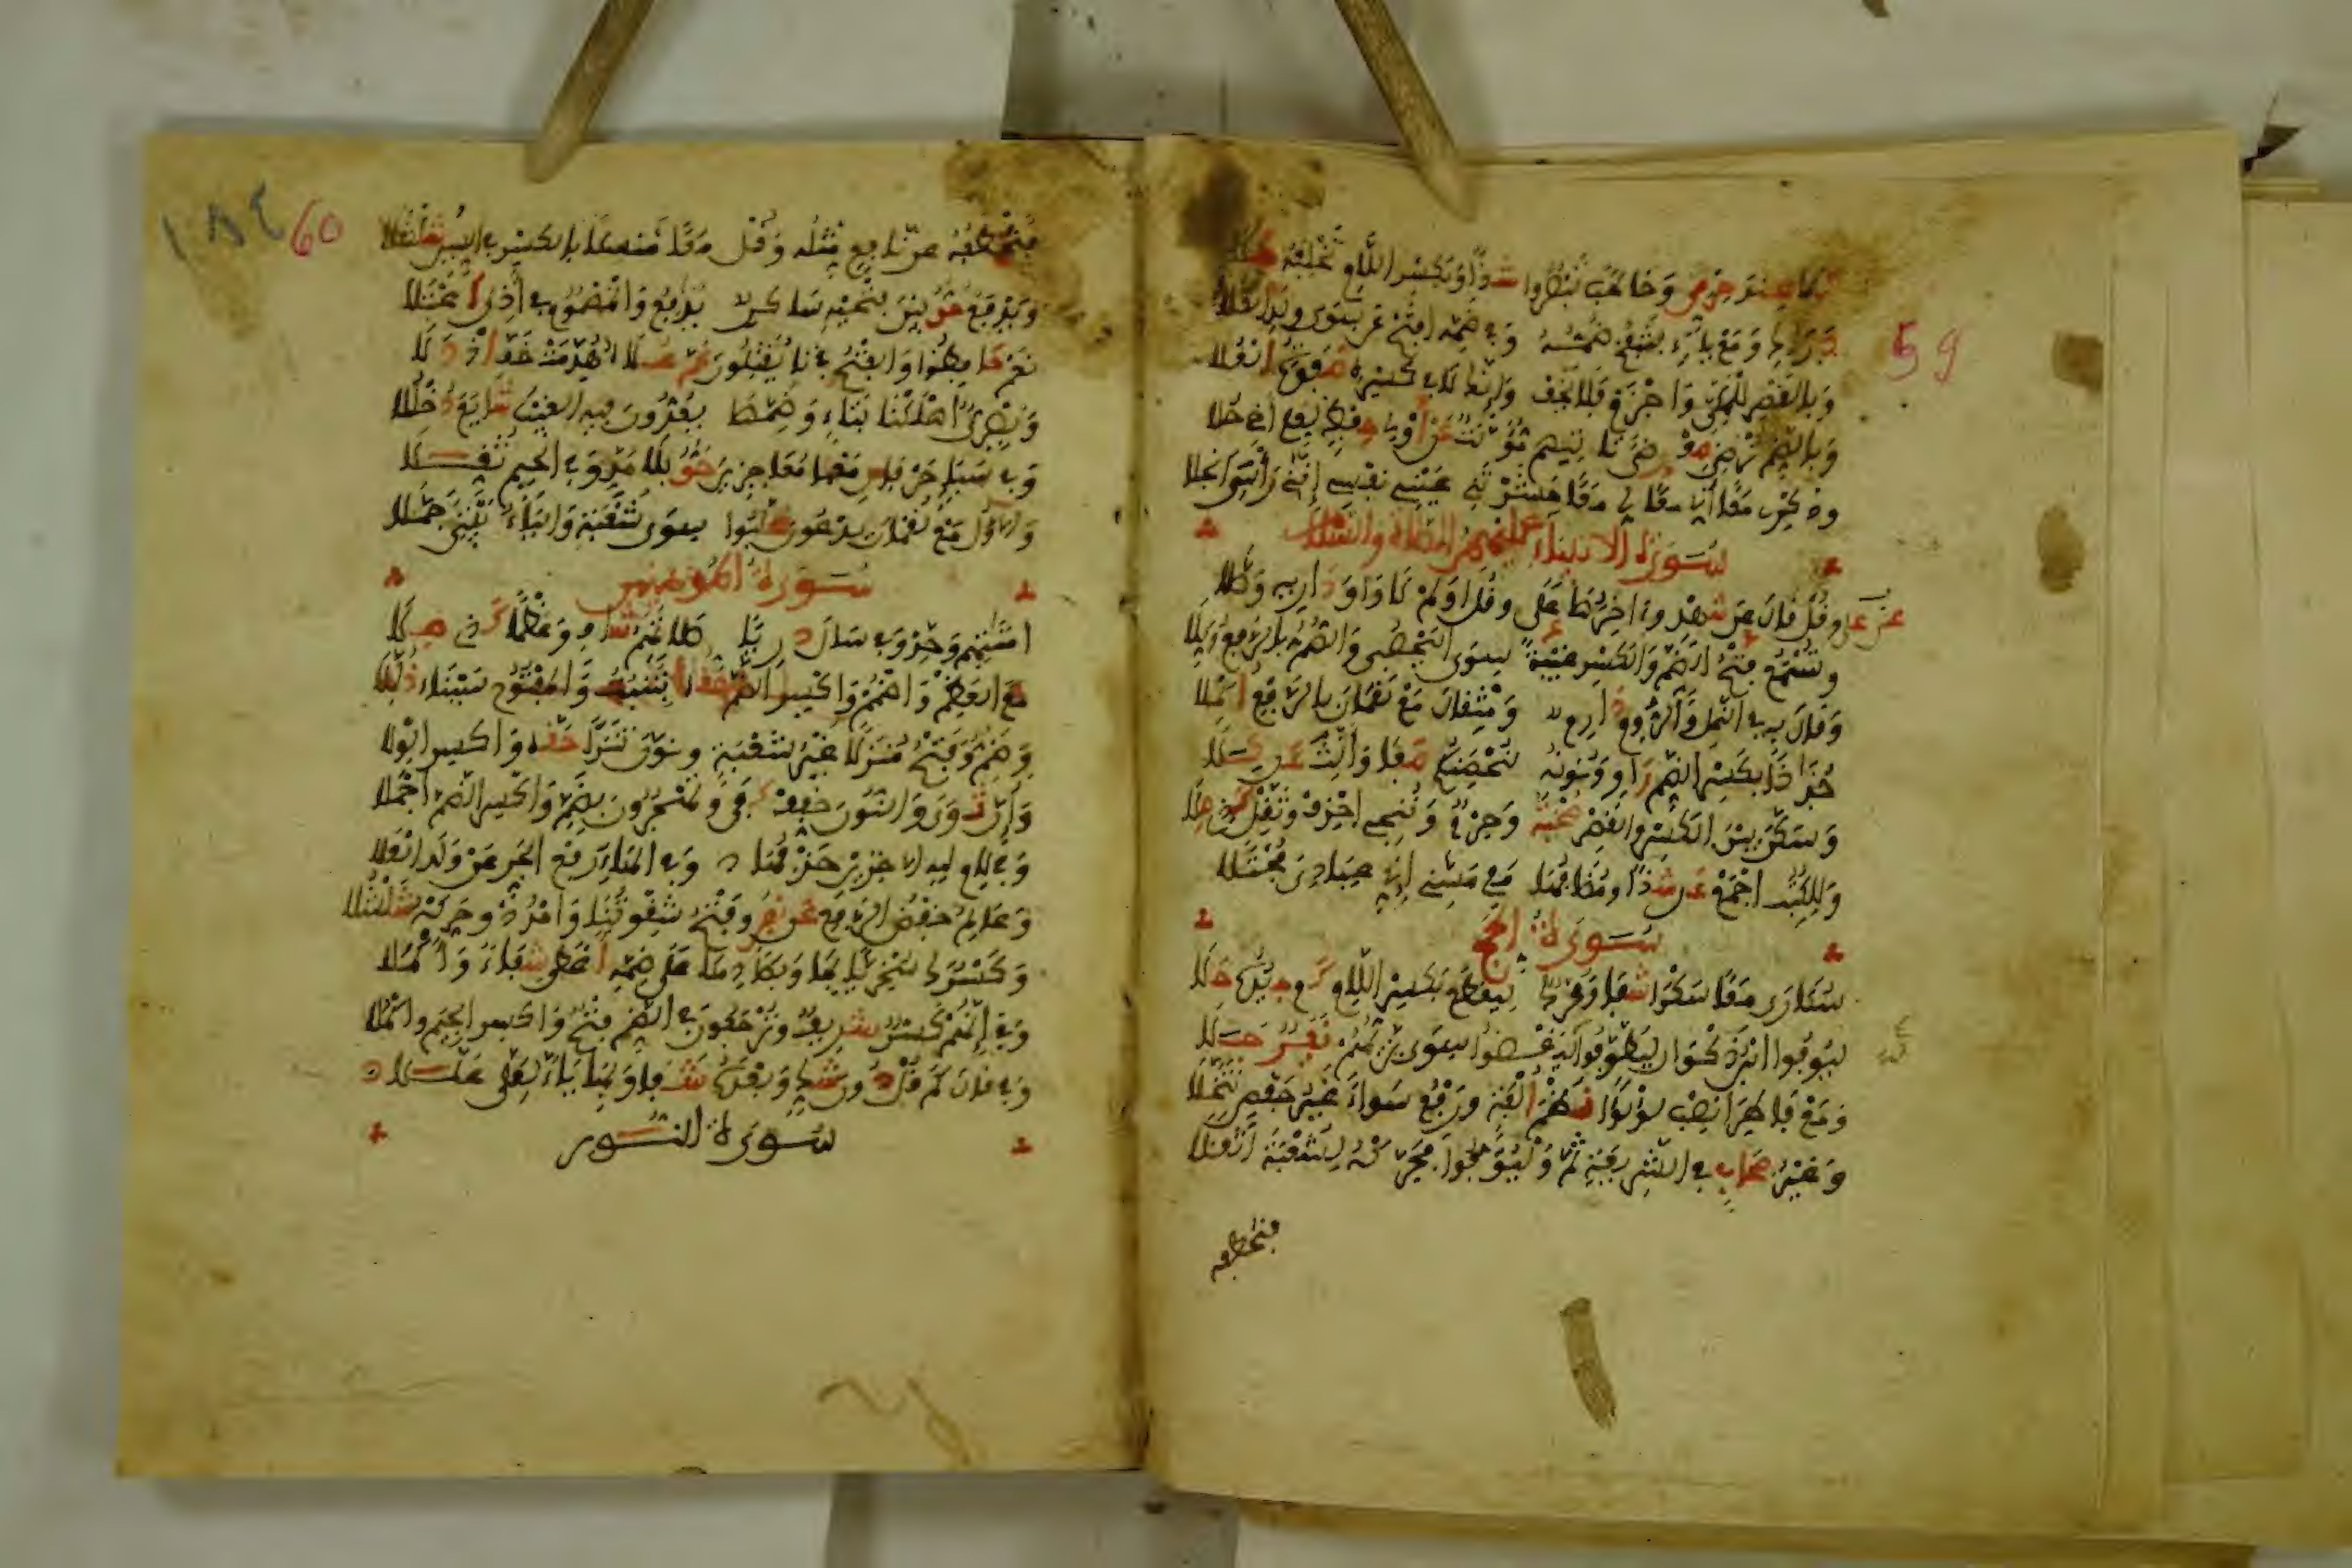 59
كما عند حرمي وخاطب تبصروا شذا وبكسر اللام تخلفه حلا
دراك ومع ياء بننفخ ضمه وفي ضمه افتح عن سوى ولد العلا
وبالقصر للمكي واجزم فلا يخف وانك لا في كسره صفوة العلا
وبالضم ترضى صف رضى تاتيهم مؤنث عن اولي حفظ لعلي اخي حلا
وذكري معا اني معا لي معا حشرتني عيني نفسي انني راسي انجلا
سورة الانبياء عليهم الصلاة والسلام
وقل قال عن شهد وءاخرها على وقل اولم لا واو داريه وصلا
وتسمع فتح الضم والكسر غيبة سوى اليحصبي والصم بالرفع وكلا
وقال به في النمل والروم دارم ومثقال مع لقمان بالرفع اكملا
جذاذا بكسر الضم راو ونونه لتحصنكم صافى وانث عن كلا
وسكن بين الكسر والقصر صحبة وحرم وننجي احذف وثقل كذي صلا
وللكتب اجمع عن شذا ومضافها معي مسني اني عبادي مجتلا
سورة الحج
سكارى معا سكرى شفا ومحرك ليقطع بكسر اللام كم جيده حلا
ليوفوا ابن ذكوان ليطوفوا له ليقضوا سوى بزيهم نفر جلا
ومع فاطر انصب لؤلؤا نظم الفة ورفع سواء غير حفص تنخلا
وغير صحاب في الشريعة ثم وليوفوا فحركه لشعبة اثقلا
فتخطفه
60
١٨٤
فتخطفه عن نافع مثله وقل معا منسكا بالكسر في السين شلشلا
ويدفع حق بين فتحيه ساكن يدافع والمضموم في اذن اعتلا
نعم حفظوا والفتح في تا يقتلون عم علاه هدمت خف اذ دلا
وبصري اهلكنا بتاء وضمها يعدون فيه الغيب شايع دخللا
وفي سبا حرفان معها معاجزين حق بلا مد وفي الجيم ثقلا
والاول مع لقمان يدعون غلبوا سوى شعبة والياء بيتي جملا
سورة المومنين
امنتهم وحد وفي سال داريا صلاتهم شاف وعظما كذي صلا
مع العظم واضمم واكسر الضم حقه بتنبت والمفتوح سيناء ذللا
وضم وفتح منزلا غير شعبة ونون تترا حقه واكسر الولا
وان ثوى والنون خفف كفى وتهجرون بضم واكسر الضم اجملا
وفي لام لله الاخيرين حذفها وفي الهاء رفع الجر عن ولد العلا
وعالم خفض الرفع عن نفر وفتح شقوتنا وامدد وحركه شلشلا
وكسرك سخريا بها وبصادها على ضمه اعطى شفاء واكملا
وفي انهم كسر شريف وترجعون في الضم فتح واكسر الجيم واكملا
وفي قال كم قل دون شك وبعده شفا وبها ياء لعلي عللا
سورة النور